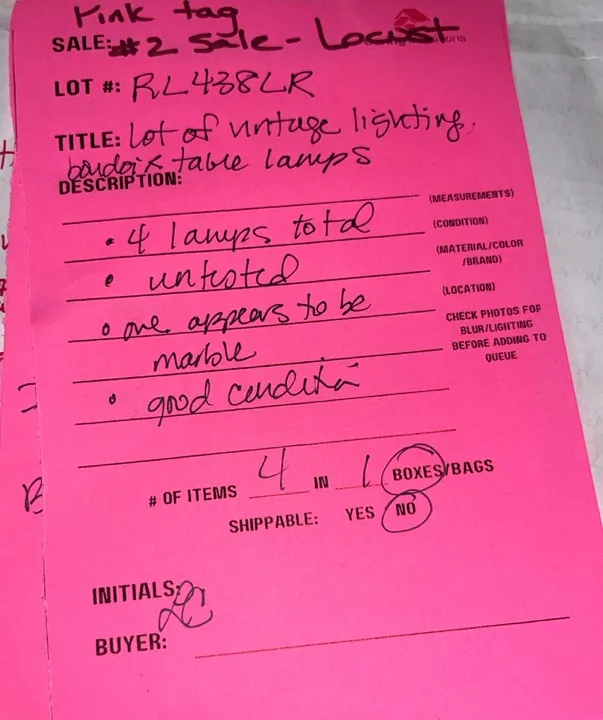 Pink tag
SALE: #2 Sale - Locust
LOT #: RL438LR
TITLE: Lot of vintage lighting,
boudoir table lamps
DESCRIPTION:
(MEASUREMENTS)
• 4 lamps total
(CONDITION)
(MATERIAL/COLOR
/BRAND)
• untested
(LOCATION)
• one appears to be
marble
CHECK PHOTOS FOR
BLUR/LIGHTING
BEFORE ADDING TO
QUEUE
• good condition
# OF ITEMS 4 IN 1 BOXES/BAGS
SHIPPABLE: YES NO
INITIALS: LC
BUYER: